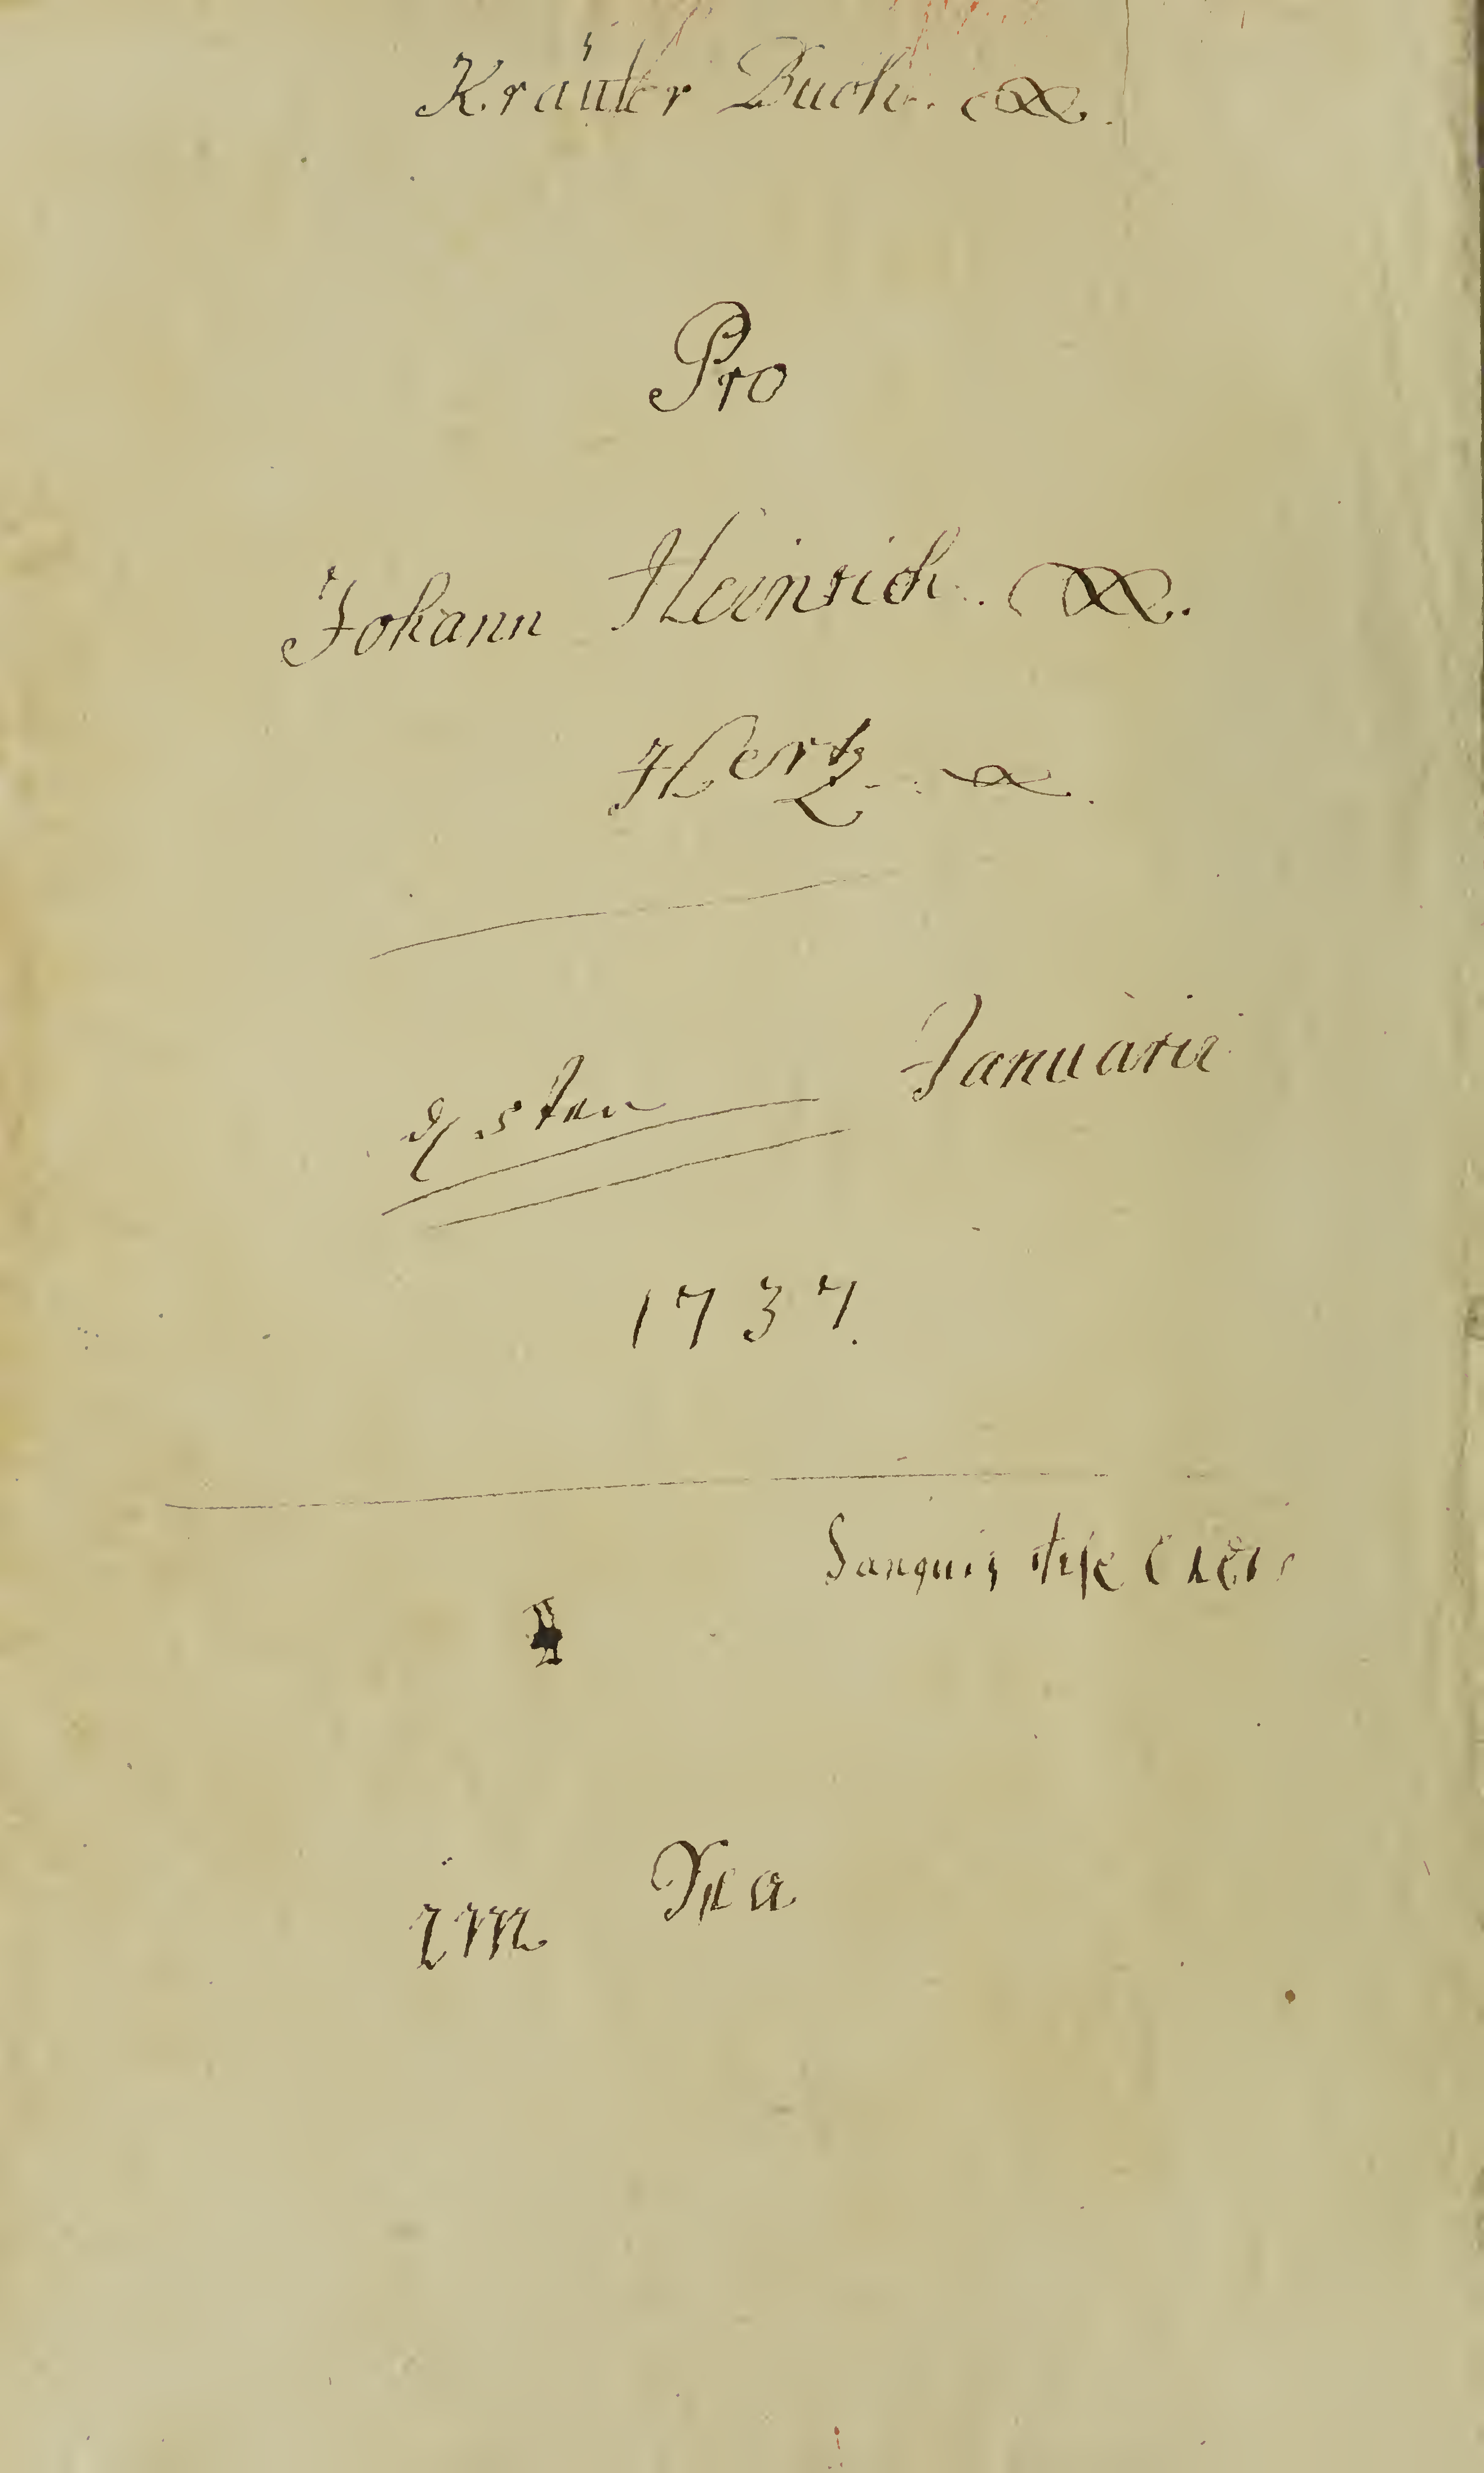 Kräuter Buch.
Pro
Johann Heinrich.
Hertz
Januarii
1737.
Sanguis
im